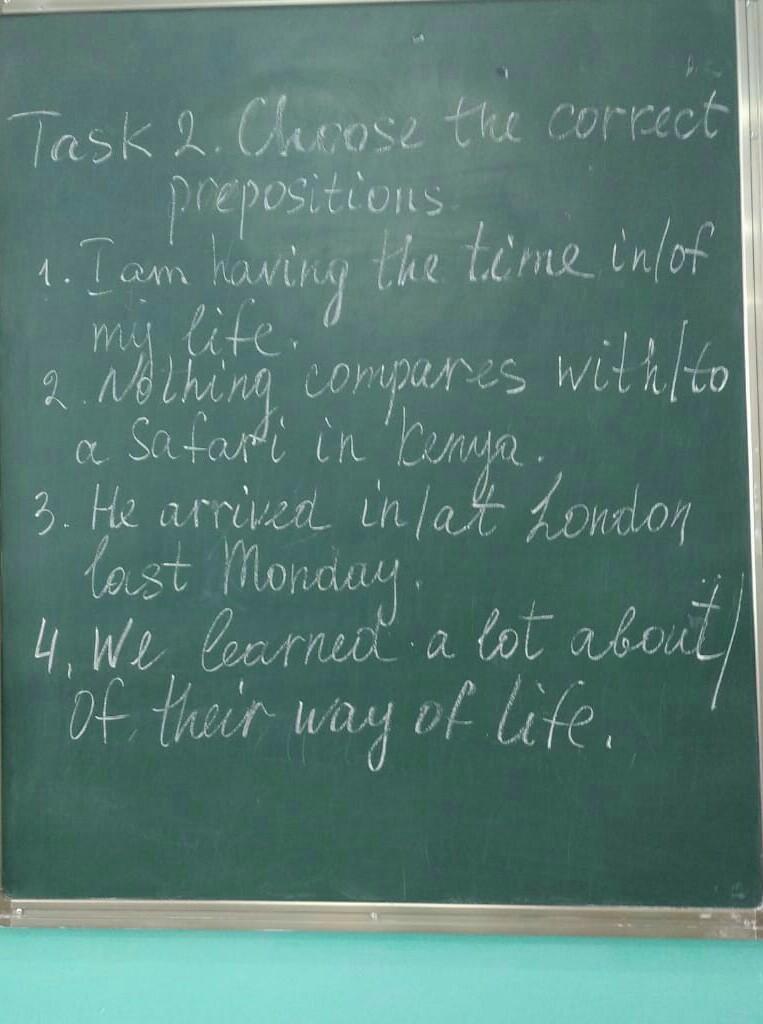 Task 2. Choose the correct
prepositions
1. I am having the time in/of
my life.
2. Nothing compares with/to
a Safari in Kenya.
3. He arrived in/at London
last Monday.
4. We learned a lot about/
of their way of life.